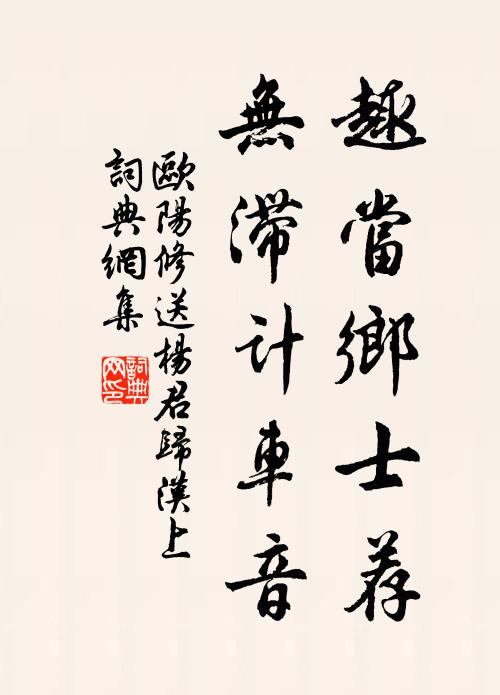 趣當鄉士荐
無滯計車音
歐陽修送楊君歸漢上
詞典網集
詞典網印